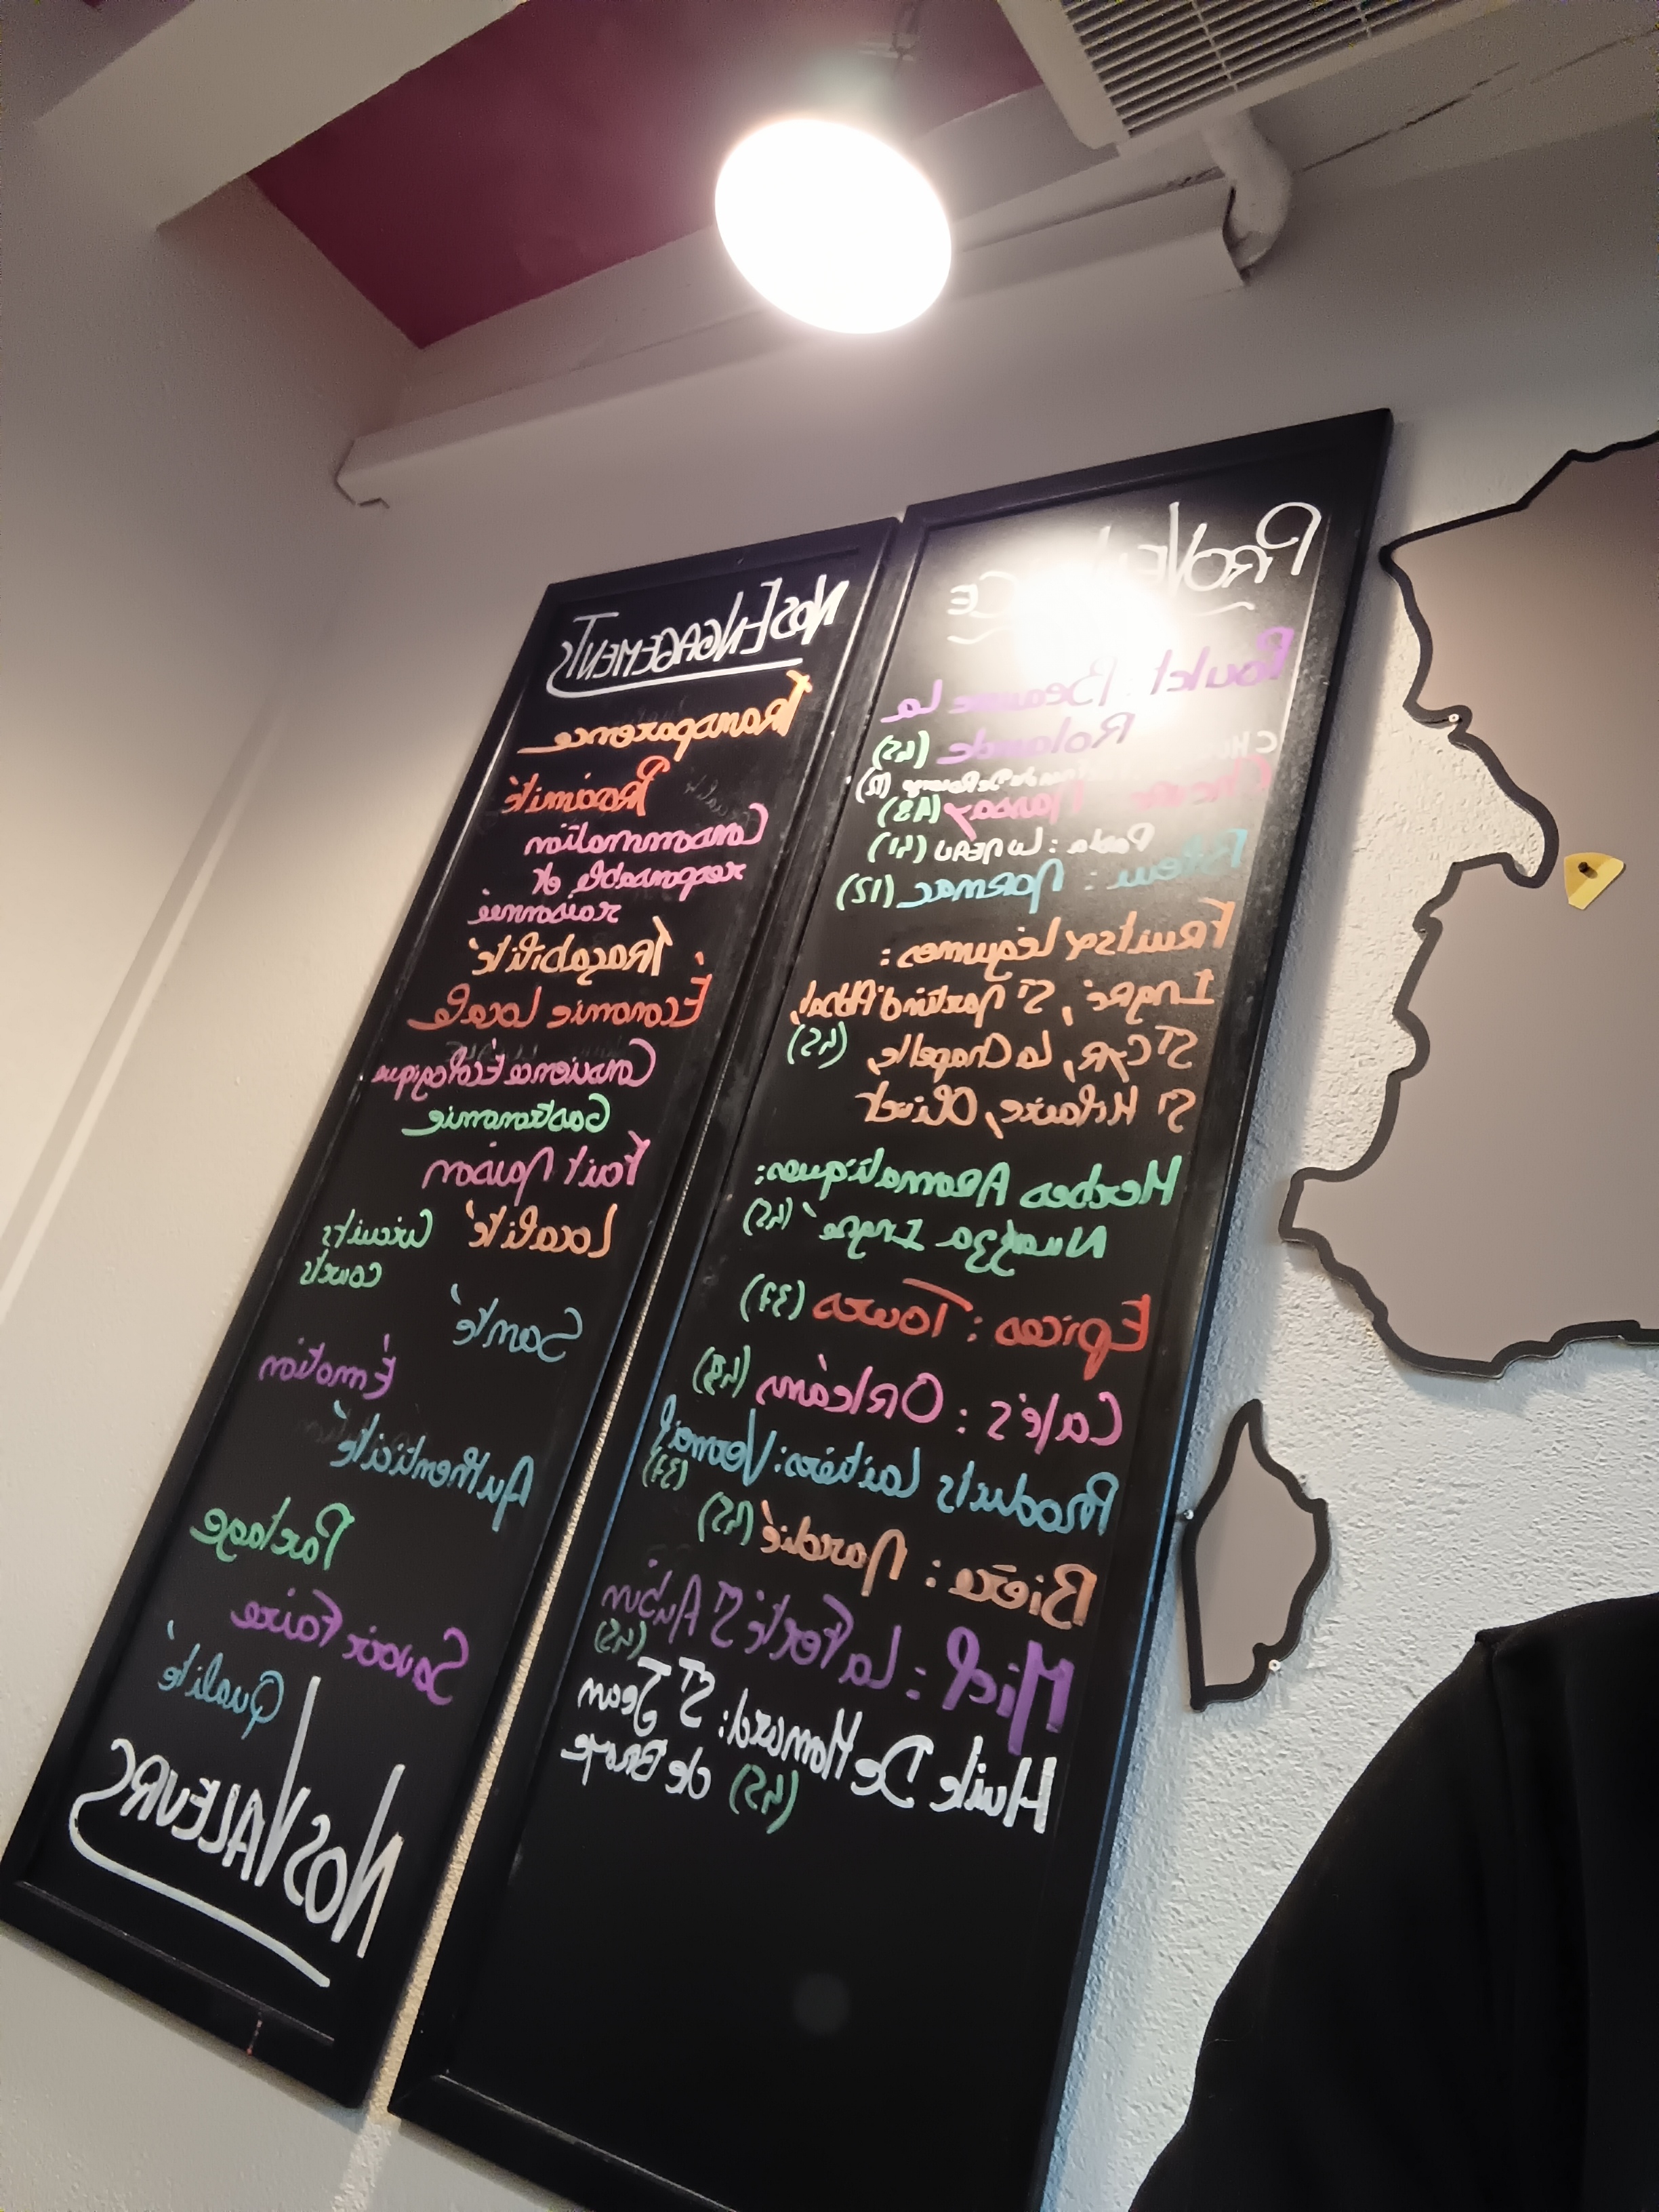 PROVENANCE
Poulet : Beaune La
Rolande (45)
(12)
Massay (18)
Pasta : LUNEAU (41)
(12)
Fruits & Légumes :
Ingré, St Martin d'Abbat,
St Cyr, La Chapelle, (45)
St Hilaire, Olivet
Herbes Aromatiques :
Ingré (45)
Epices : Tours (37)
Cafés : Orléans (45)
Produits Laitiers :
(37)
Bière : Mardié (45)
Miel : La Ferté St Aubin
(45)
Huile De : St Jean
(45) de Braye
NOS ENGAGEMENTS
Transparence
Proximité
Consommation
responsable et
raisonnée
Traçabilité
Économie Locale
Conscience Écologique
Gastronomie
Fait Maison
Localité Circuits
courts
Santé
Émotion
Authenticité
Partage
Savoir Faire
Qualité
NOS VALEURS